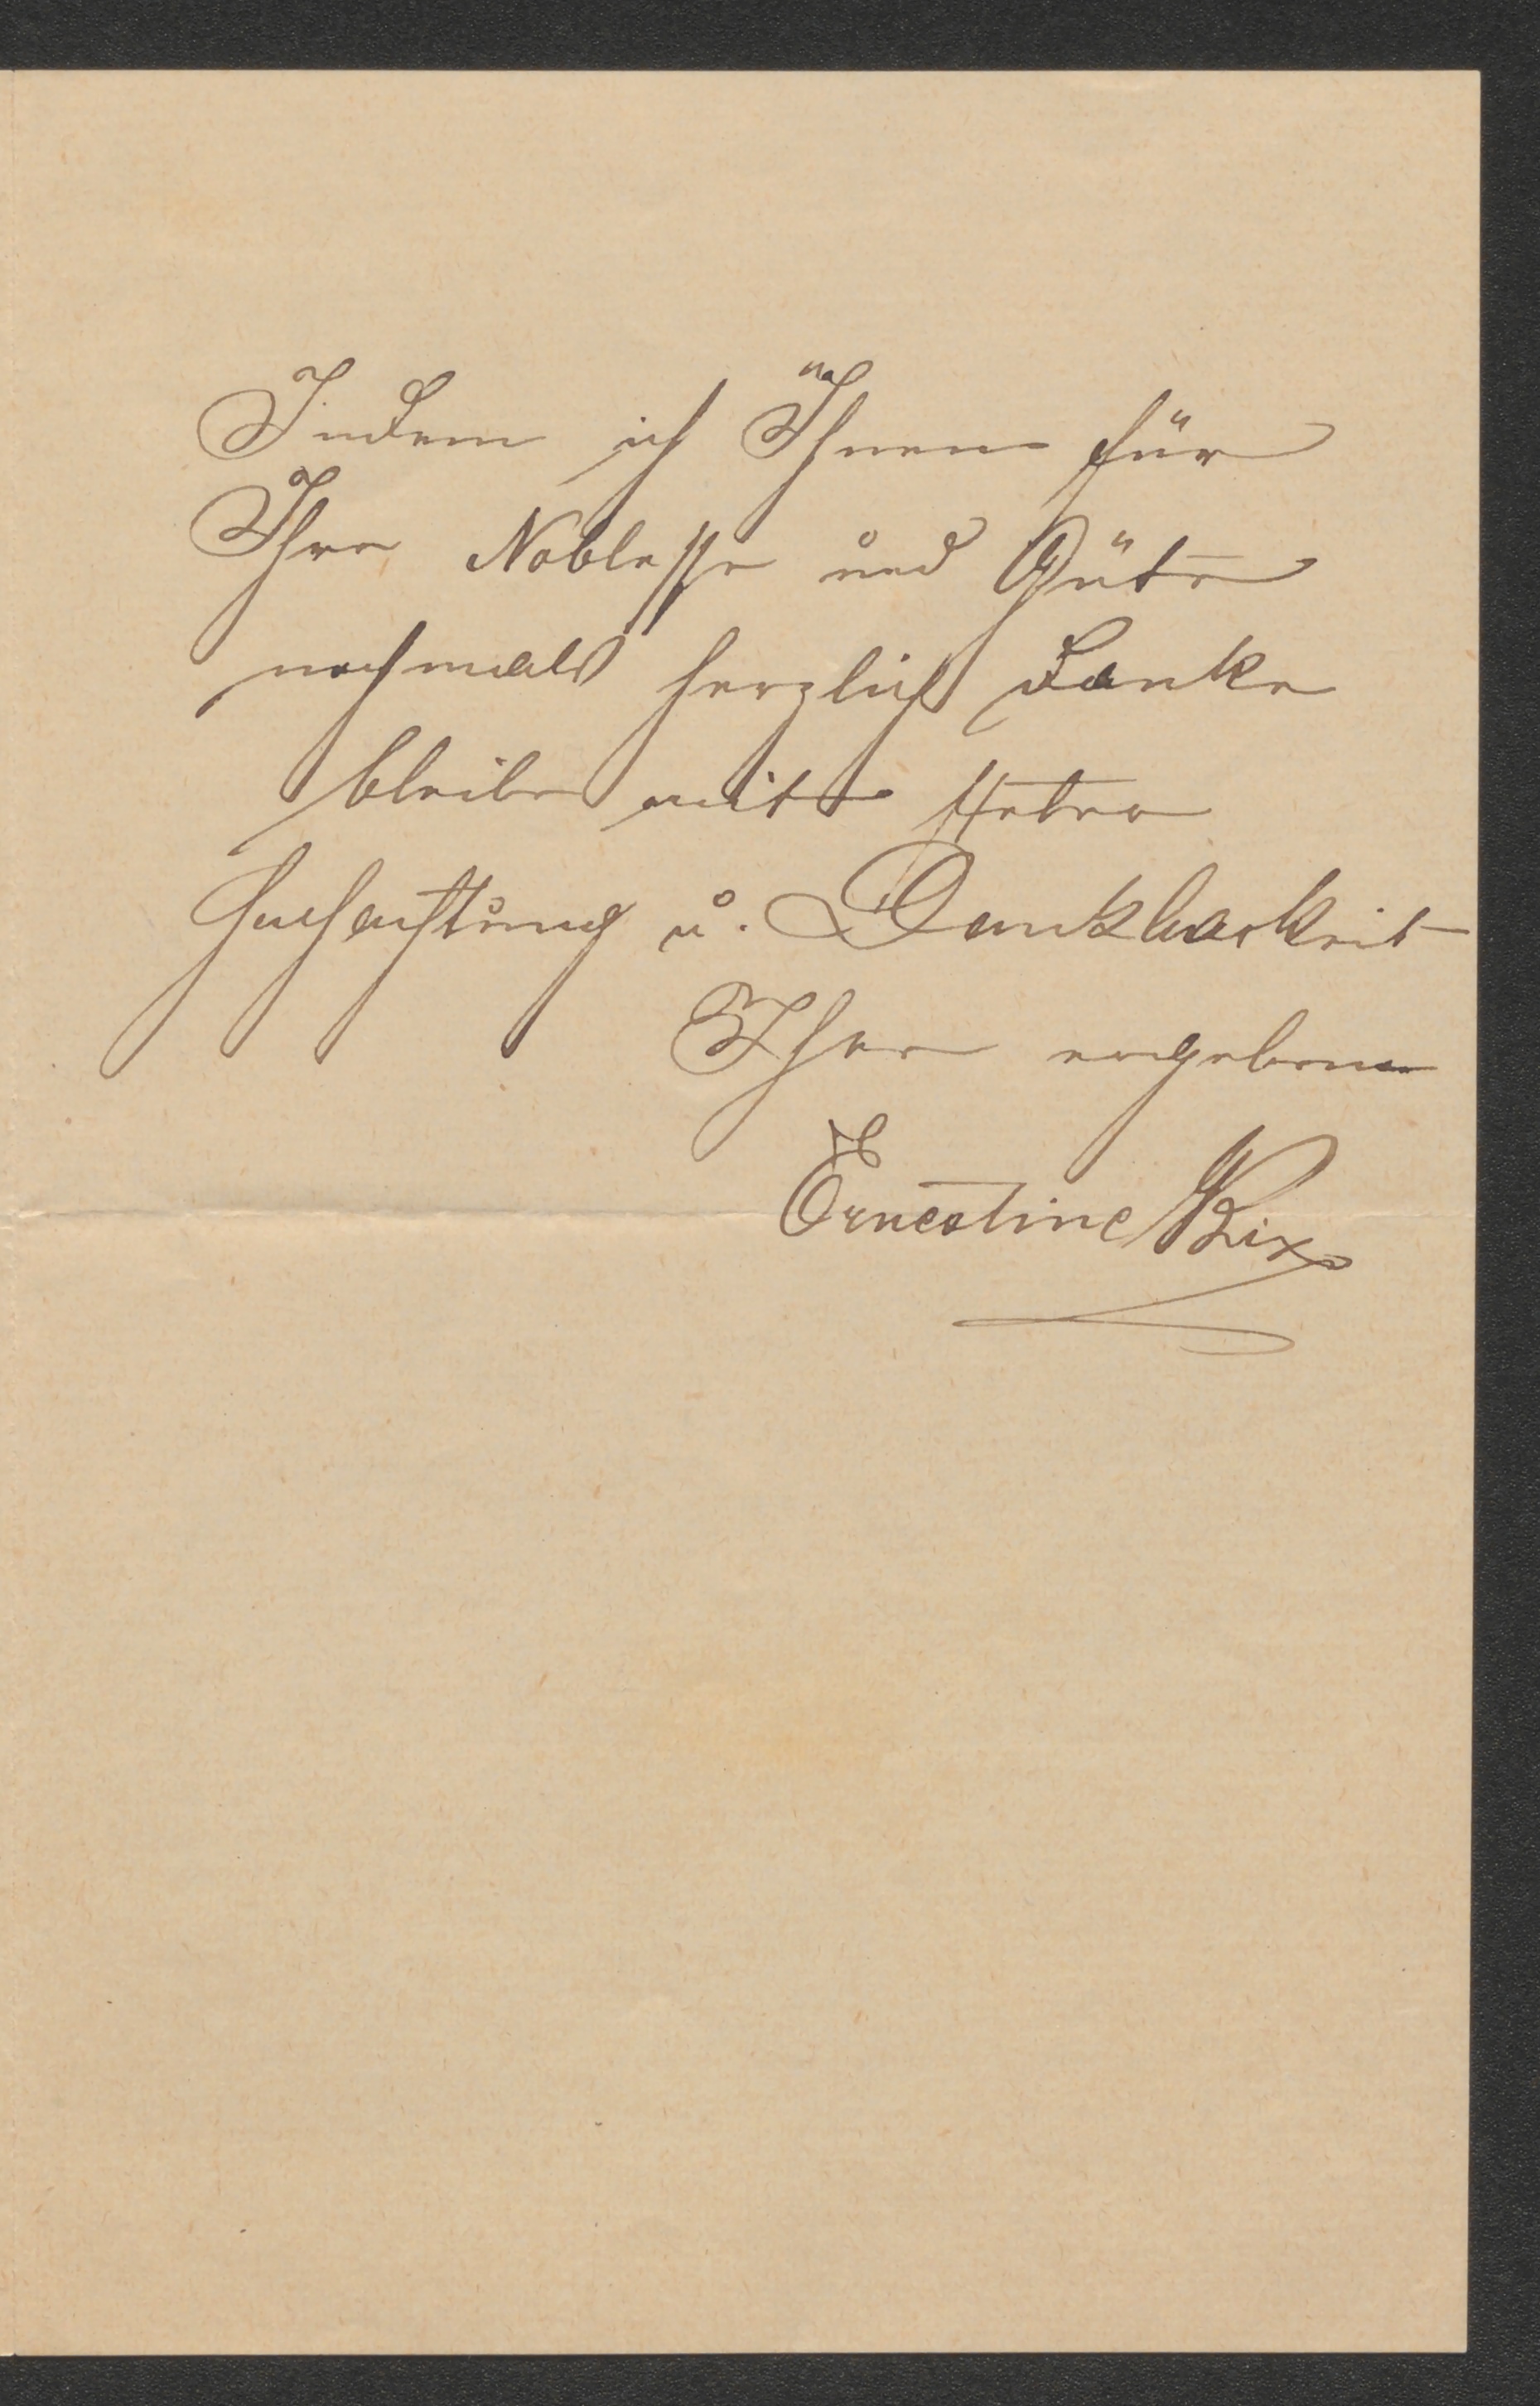 Indem ich Ihnen für
Ihre Noblesse und Güte
nochmals herzlich danke
bleibe mit steter
Hochachtung u. Dankbarkeit
Ihre ergebene
Ernestine Rix